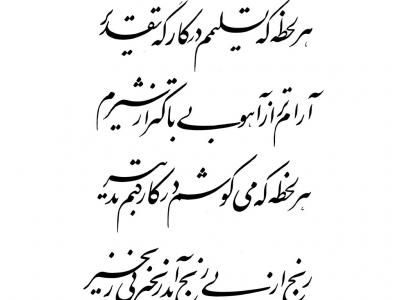 هر لحظه که تسلیمم در کارگه تقدیر
آرام‌تر از آهو بی باک‌تر از شیرم
هر لحظه که می‌کوشم در کار کنم تدبیر
رنج از پی رنج آید زنجیر پی زنجیر